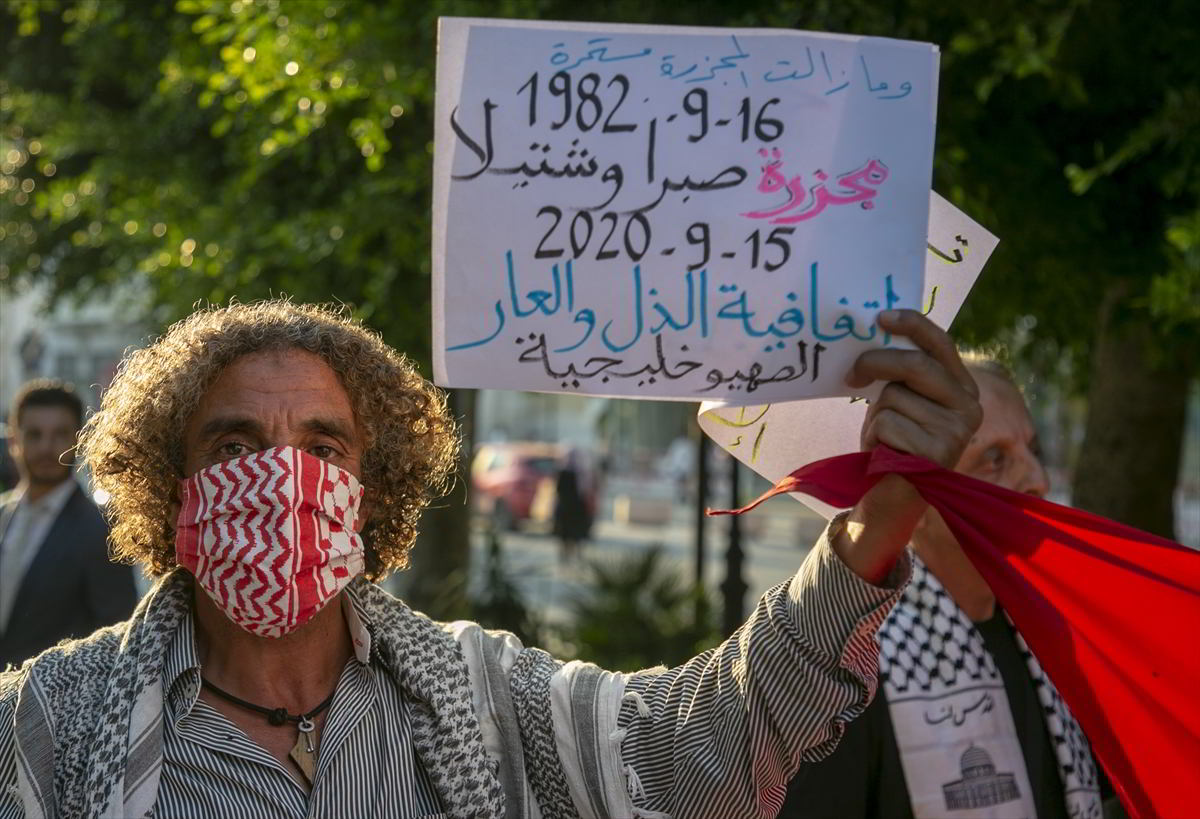 وما زالت المجزرة مستمرة
1982-9-16
مجزرة صبرا وشتيلا
2020-9-15
اتفاقية الذل والعار
الصهيو خليجية
القدس لنا